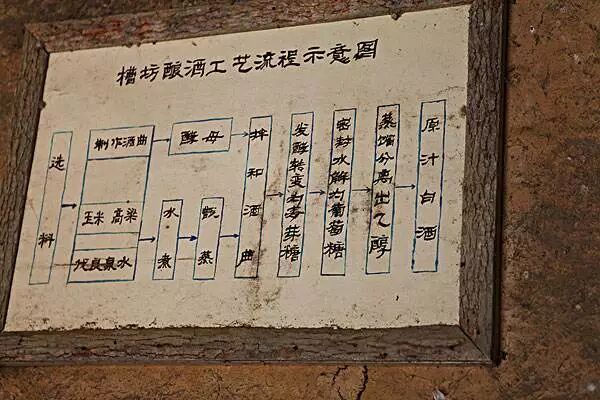 槽坊酿酒工艺流程示意图
选料
制作酒曲
酵母
玉米 高粱
优良泉水
水煮
甑蒸
拌和酒曲
发酵转变为麦芽糖
密封水解为葡萄糖
蒸馏分离出乙醇
原汁白酒